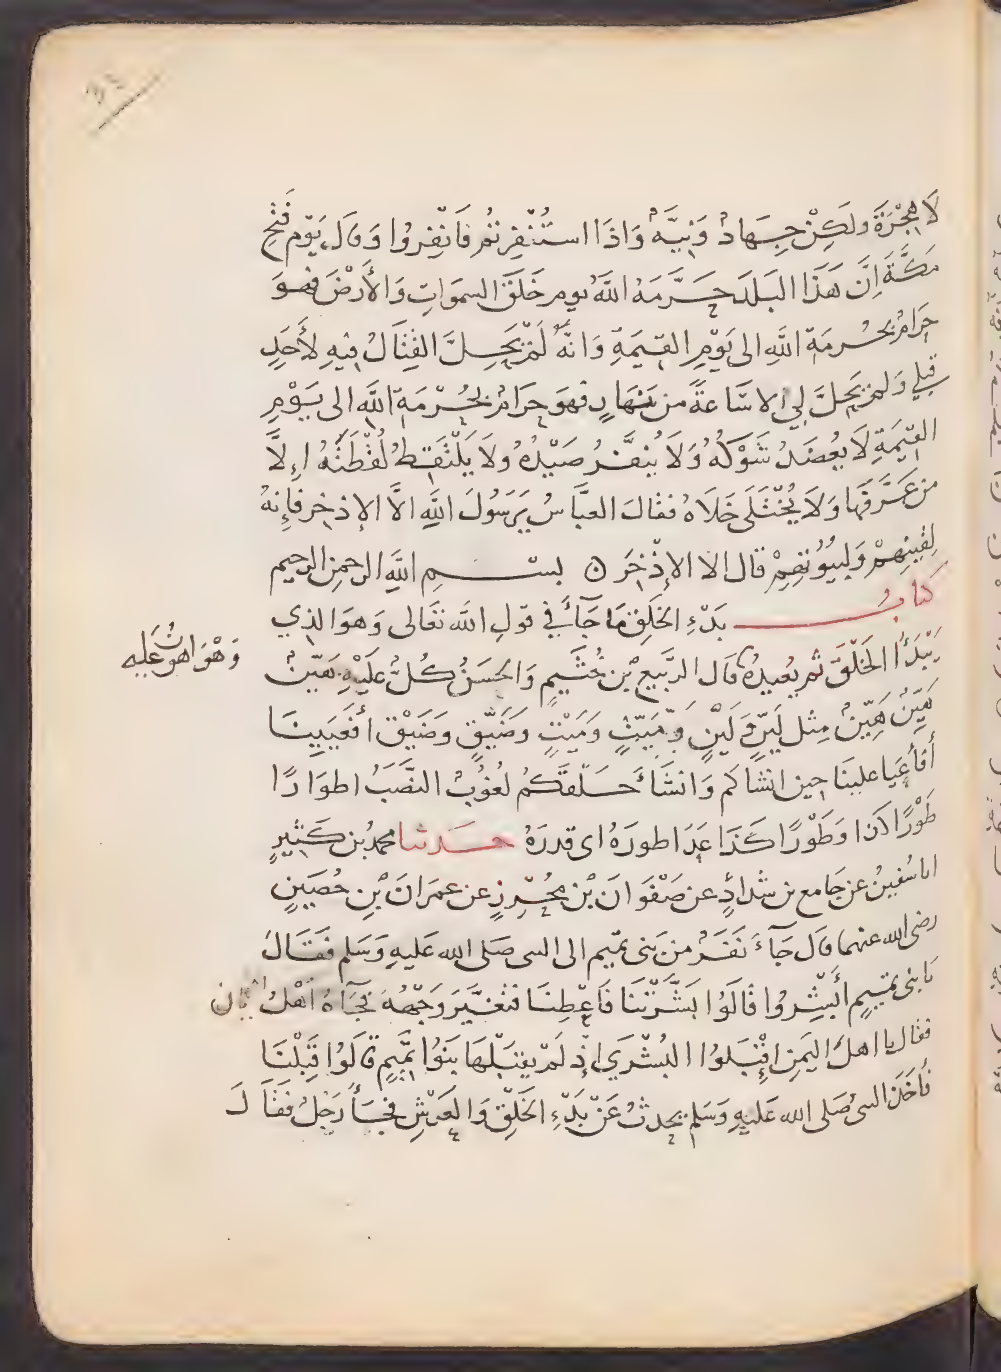 ٣٤
لَا هِجْرَةَ ولَكِنْ جِهَادٌ وَنِيَّةٌ وَاذَا استُنْفِرتُم فَانْفِروا وَقال يَوْم فَتْحِ
مَكَّةَ اِنَّ هَذَا البَلَدَ حَرَّمَهُ اللّهُ يوم خَلَقَ السموَاتِ وَالأَرْضَ فهوَ
حَرَامٌ بحُرمَةِ اللّهِ الى يَوْمِ القيٰمَةِ وَانهُ لَمْ يَحِلَّ القِتَالُ فِيهِ لأَحَدٍ
قَبلِي وَلم يَحِلَّ لِي الا سَاعةً من نهَارٍ فهوَ حَرَامٌ بحُرْمَةِ اللّه الى يَوْمِ
القيٰمَةِ لَا يُعضَدُ شَوْكُهُ وَلَا يُنفَّرُ صَيْدُهُ ولَا يَلْتَقِطُ لُقْطَتَهُ اِلَّا
من عَرَّفَهَا وَلَا يُخْتَلَى خَلَاهُ فقَالَ العبَّاسُ يَرَسُولَ اللّهِ الَّا الإذخر فَإِنهُ
لقَينِهِمْ وَلِبيُوتِهِمْ قال الا الإذْخِرَ ه بسْمِ اللّهِ الرحمنِ الرحيم
كتابُ بَدْءِ الخَلقِ مَا جَآءَ في قولِ اللّه تعَالى وَهوَ الذِي
يَبْدَأُ الخَلْقَ ثم يُعيدُهُ قال الربَيع بْن خُثَيمٍ وَالحسَنُ كُلٌّ عَلَيْهِ هَيّنٌ
وَهْوَ اهوَنُ عليهِ
هَيِّنٌ هَيْنٌ مِثل لَيّنٍ وَلَيْنٍ وَمَيّتٍ وَمَيْتٍ وَضَيّقٍ وَضَيْقٍ أفَعَيِينَا
أَفأَعيَا علينَا حِين انشَاكم وَانشَأ خَلْقَكُم لُغُوبٌ النَّصَبُ اطوَارًا
طَوْرًا كذا وَطَوْرًا كَذَا عَدَا طورَهُ اى قدرَهُ حَدثنا محمدُ بن كَثيرٍ
انا سُفينُ عن جَامع بن شدَادٍ عن صَفْوَانَ بْن مُحْرِزٍ عن عمرَانَ بْنِ حُصَينٍ
رضى الله عنهما قال جَآءَ نَفَرٌ من بَنى تميم الى النبى صَلى الله عَليهِ وَسَلم فَقَالَ
يَا بَنى تميمٍ أَبْشِروا قالُوا بَشَّرْتَنَا فَاعْطِنَا فَتَغَيَّرَ وَجْهُهُ فجَآءَهُ أهْلُ اليمن
فقَال يا اهلَ اليَمنِ اقْبَلوُا البُشْرَي إذْ لَمْ يقبَلْهَا بَنوُا تَمِيمٍ قالُوا قَبِلْنَا
فأخَذَ النبىُ صَلى الله عَليهِ وَسَلم يحدثُ عَنْ بَدْءِ الخلْقِ وَالعَرْشِ فجَاءَ رَجُلٌ فقَالَ